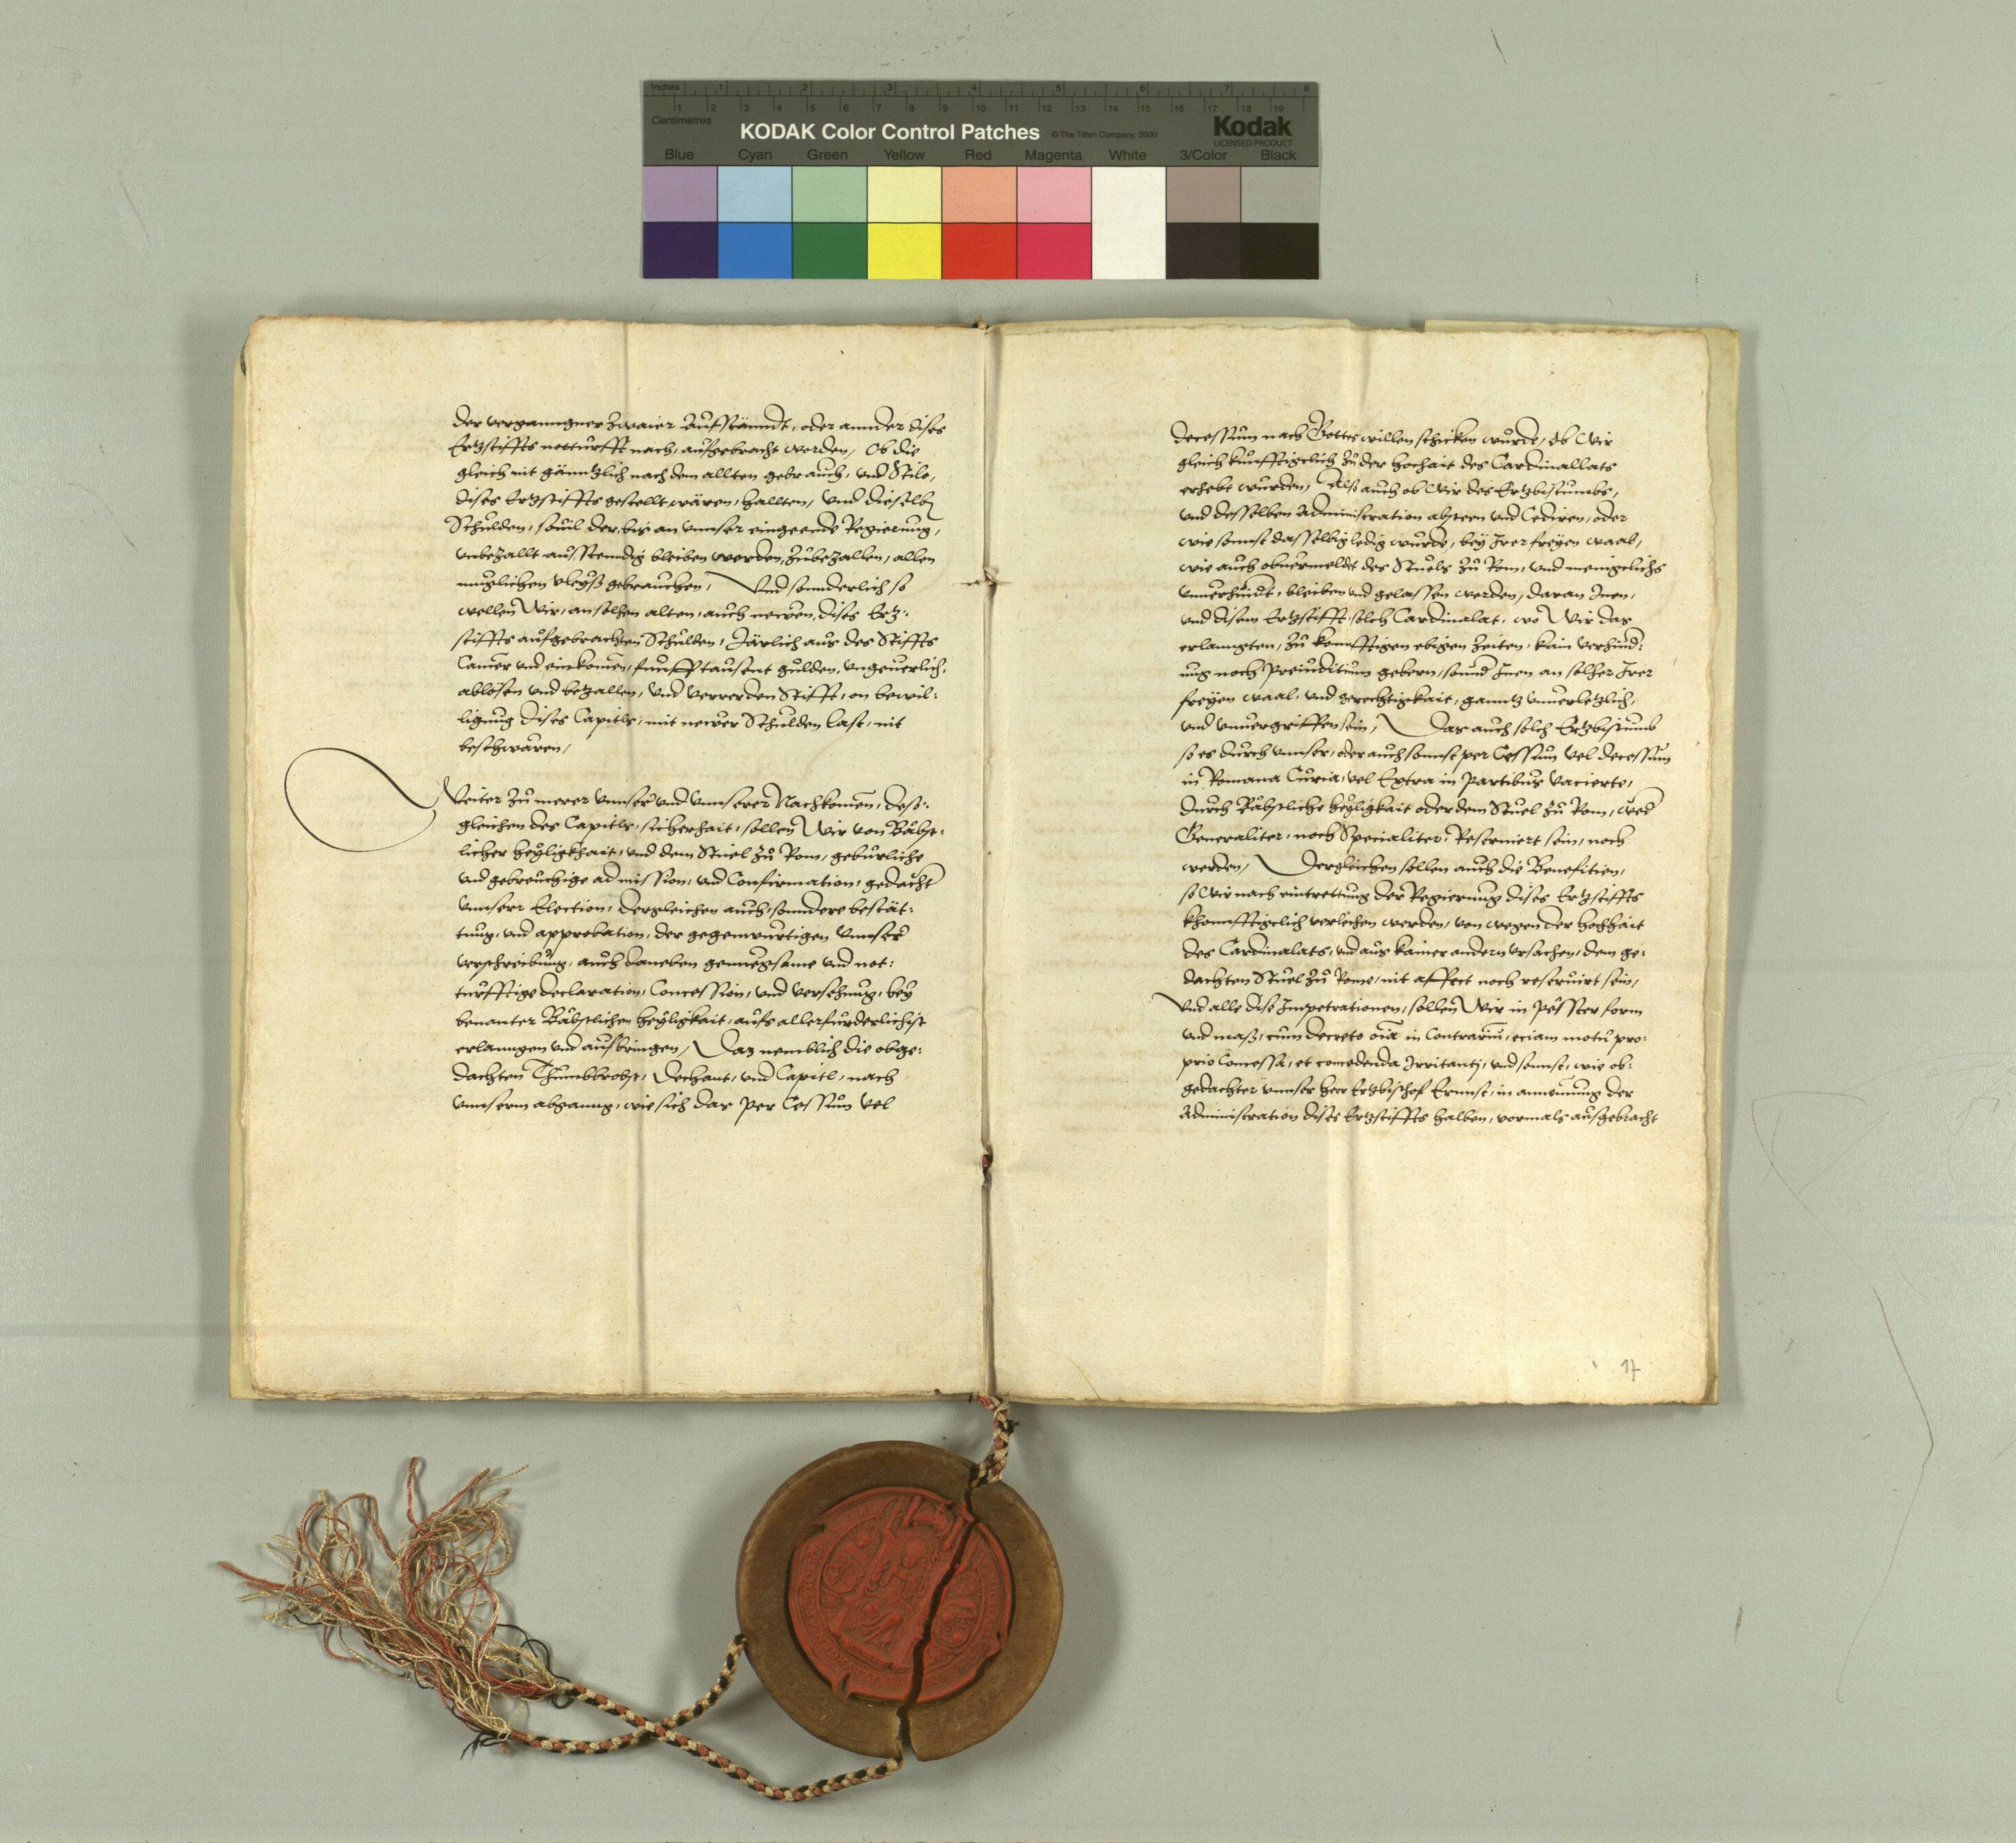 Inches 1 2 3 4 5 6 7 8
1 2 3 4 5 6 7 8 9 10 11 12 13 14 15 16 17 18 19
Centimetres
KODAK Color Control Patches © The Tiffen Company, 2000 Kodak
LICENSED PRODUCT
Blue Cyan Green Yellow Red Magenta White 3/Color Black
der vergangner zwaier Aufstänndt, oder annder dises
Ertzstiffts notturfft nach, aufgebracht worden, Ob die
gleich nit gänntzlich nach dem allten gebrauch, vnd Stilo,
dises Ertzstiffts gestellt wären, hallten, vnd dieselbn
Schulden, souil der, bis an vnnser eingeende Regierung,
vnbezallt ausstenndig bleiben werden, zubezallen, allen
muglichen vleyß gebrauchen, Vnd sonnderlich so
wellen Wir, an solhen alten, auch newen, dises Ertz-
stiffts aufgebrachten Schulden, Järlich aus des Stiffts
Camer vnd einkomen, funfftausent gulden, vngeuerlich,
ablösen vnd betzallen, vnd verrer den Stifft, on bewil-
ligung dises Capitls, mit newer Schulden last, nit
beschwären,
Weiter zu merer vnnser vnd vnnserer Nachkomen, des-
gleichen des Capitls, sicherhait, sollen Wir von Bäbst-
licher heyligkhait, vnd dem Stuel zu Rom, geburliche
vnd gebreuchige admission, vnd Confirmation, gedacht
vnnserr Election, dergleichen auch, sonndere bestät-
tung, vnd approbation, der gegenwurtigen vnnser
verschreibung, auch daneben genuegsame vnd not-
turfftige declaration, Concession, vnd versehung, bey
benanter Bäbstlichen heyligkait, aufs allerfurderlichist
erlanngen vnd ausbringen, Daz nemblich die obge-
dachten Thumbbrobst, Dechant, vnd Capitl, nach
vnnserm abganng, wie sich das per Cessum vel
decessum nach Gottes willen schicken wurde, Ob Wir
gleich kunfftigclich zu der hochait des Cardinallats
erhebt wurden, Also auch ob Wir des Ertzbistumbs,
vnd desselben Administration absteen vnd Cediren, oder
wie sonnst dasselbig ledig wurde, bey Irer freyen waal,
wie auch obuermeldt des Stuels zu Rom, vnd menigclichs
vnuerhindt, bleiben vnd gelassen werden, daran Inen,
vnd disem Ertzstifft, solch Cardinalat, wo Wir das
erlanngten, zu konnfftigen ebigen zeiten, kain verhind-
ung noch Preiuditium gebern, sonnd Inen an solher Irer
freyen waal, vnd gerechtigkait, ganntz vnuerletzlich,
vnd vnuergriffen sein, Das auch solch Ertzbistumb
so es durch vnnser, oder auch sonnst per Cessum vel decessum
in Romana Curia, vel Extra in Partibus vacierte,
durch Bäbstliche heyligkait oder dem Stuel zu Rom, weder
Generaliter, noch Specialiter, Reseruiert sein, noch
werden, Dergleichen sollen auch die Benefitien,
so Wir nach eintrettung der Regierung dises Ertzstiffts
khonnfftigclich verleihen werden, von wegen der hochhait
des Cardinalats, vnd aus kainer andern vrsachen, dem ge-
dachten Stuel zu Rome, nit affect noch reseruirt sein,
Vnd alle dise Impetrationen, sollen Wir in pesster form
vnd maß, cum decreto oia in Contrariu, eciam motu pro-
prio Concessa, et concedenda Irritanti, vnd sonnst, wie ob-
gedachter vnnser herr Ertzbischof Ernnst, in annemung der
Administration dises Ertzstiffts halben, vormals ausgebracht
17